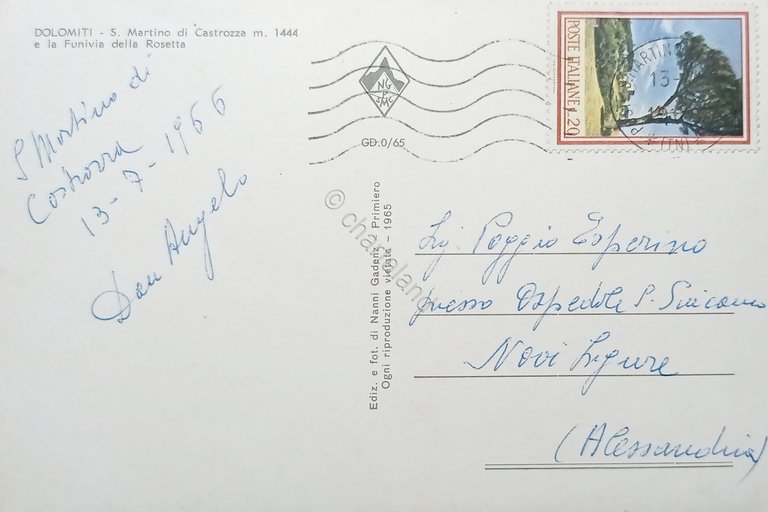 DOLOMITI - S. Martino di Castrozza m. 1444
e la Funivia della Rosetta
S Martino di
Castrozza
13-7-1966
Don Angelo
NG
P
SMC
GD.0/65
POSTE ITALIANE L. 20
MARTINO
13-
(TN)
Ediz. e fot. di Nanni Gadenz - Primiero
Ogni riproduzione vietata - 1965
© charta
Sig. Poggio Esperino
presso Ospedale S. Giacomo
Novi Ligure
(Alessandria)